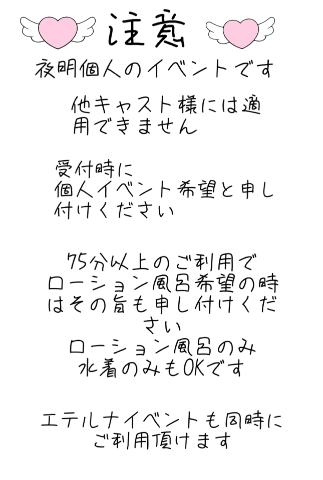 注意
夜明個人のイベントです
他キャスト様には適
用できません
受付時に
個人イベント希望と申し
付けください
75分以上のご利用で
ローション風呂希望の時
はその旨も申し付けくだ
さい
ローション風呂のみ
水着のみもOKです
エテルナイベントも同時に
ご利用頂けます